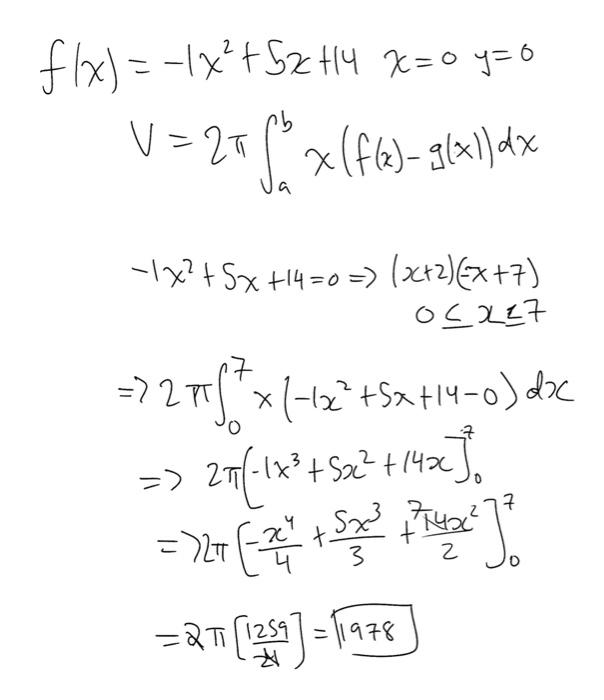 f(x) = -1x² + 5x + 14 x = 0 y = 0
V = 2π ∫ₐᵇ x(f(x) - g(x)) dx
-1x² + 5x + 14 = 0 => (x+2)(-x+7)
0 ≤ x ≤ 7
=> 2π ∫₀⁷ x(-1x² + 5x + 14 - 0) dx
=> 2π[-1x³ + 5x² + 14x]₀⁷
=> 2π[-x⁴/4 + 5x³/3 + 14x²/2]₀⁷
= 2π[1259/4] = 1978